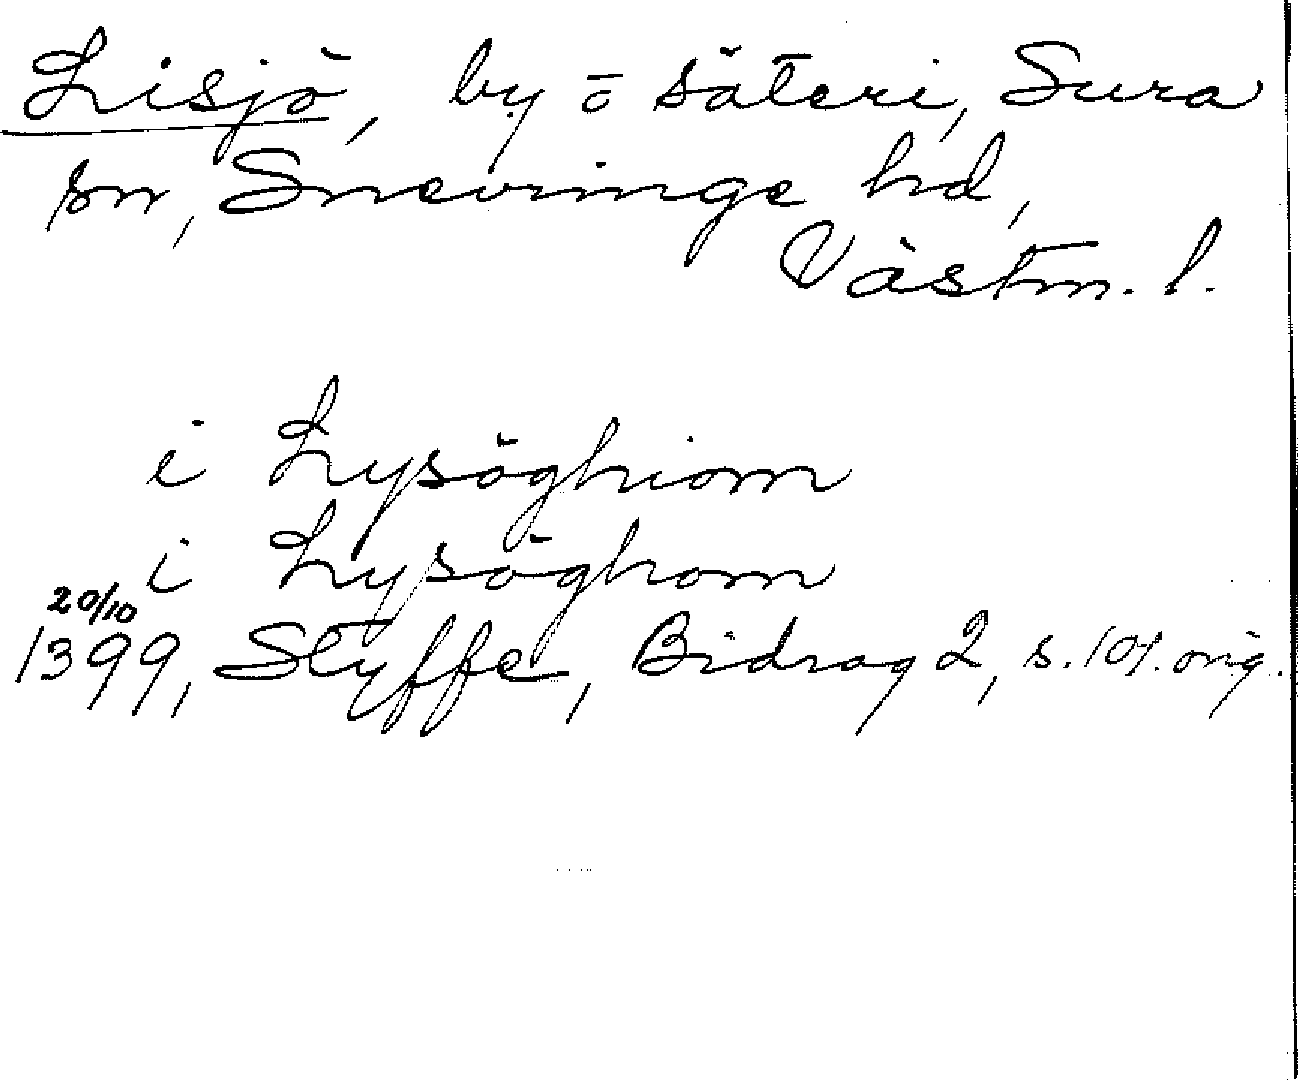 Lisjö, by o säteri, Sura
sn, Snevringe hd,
Västm. l.
i Lysöghiom
i Lysöghom
20/10
1399, Styffe, Bidrag 2, s. 101. orig.